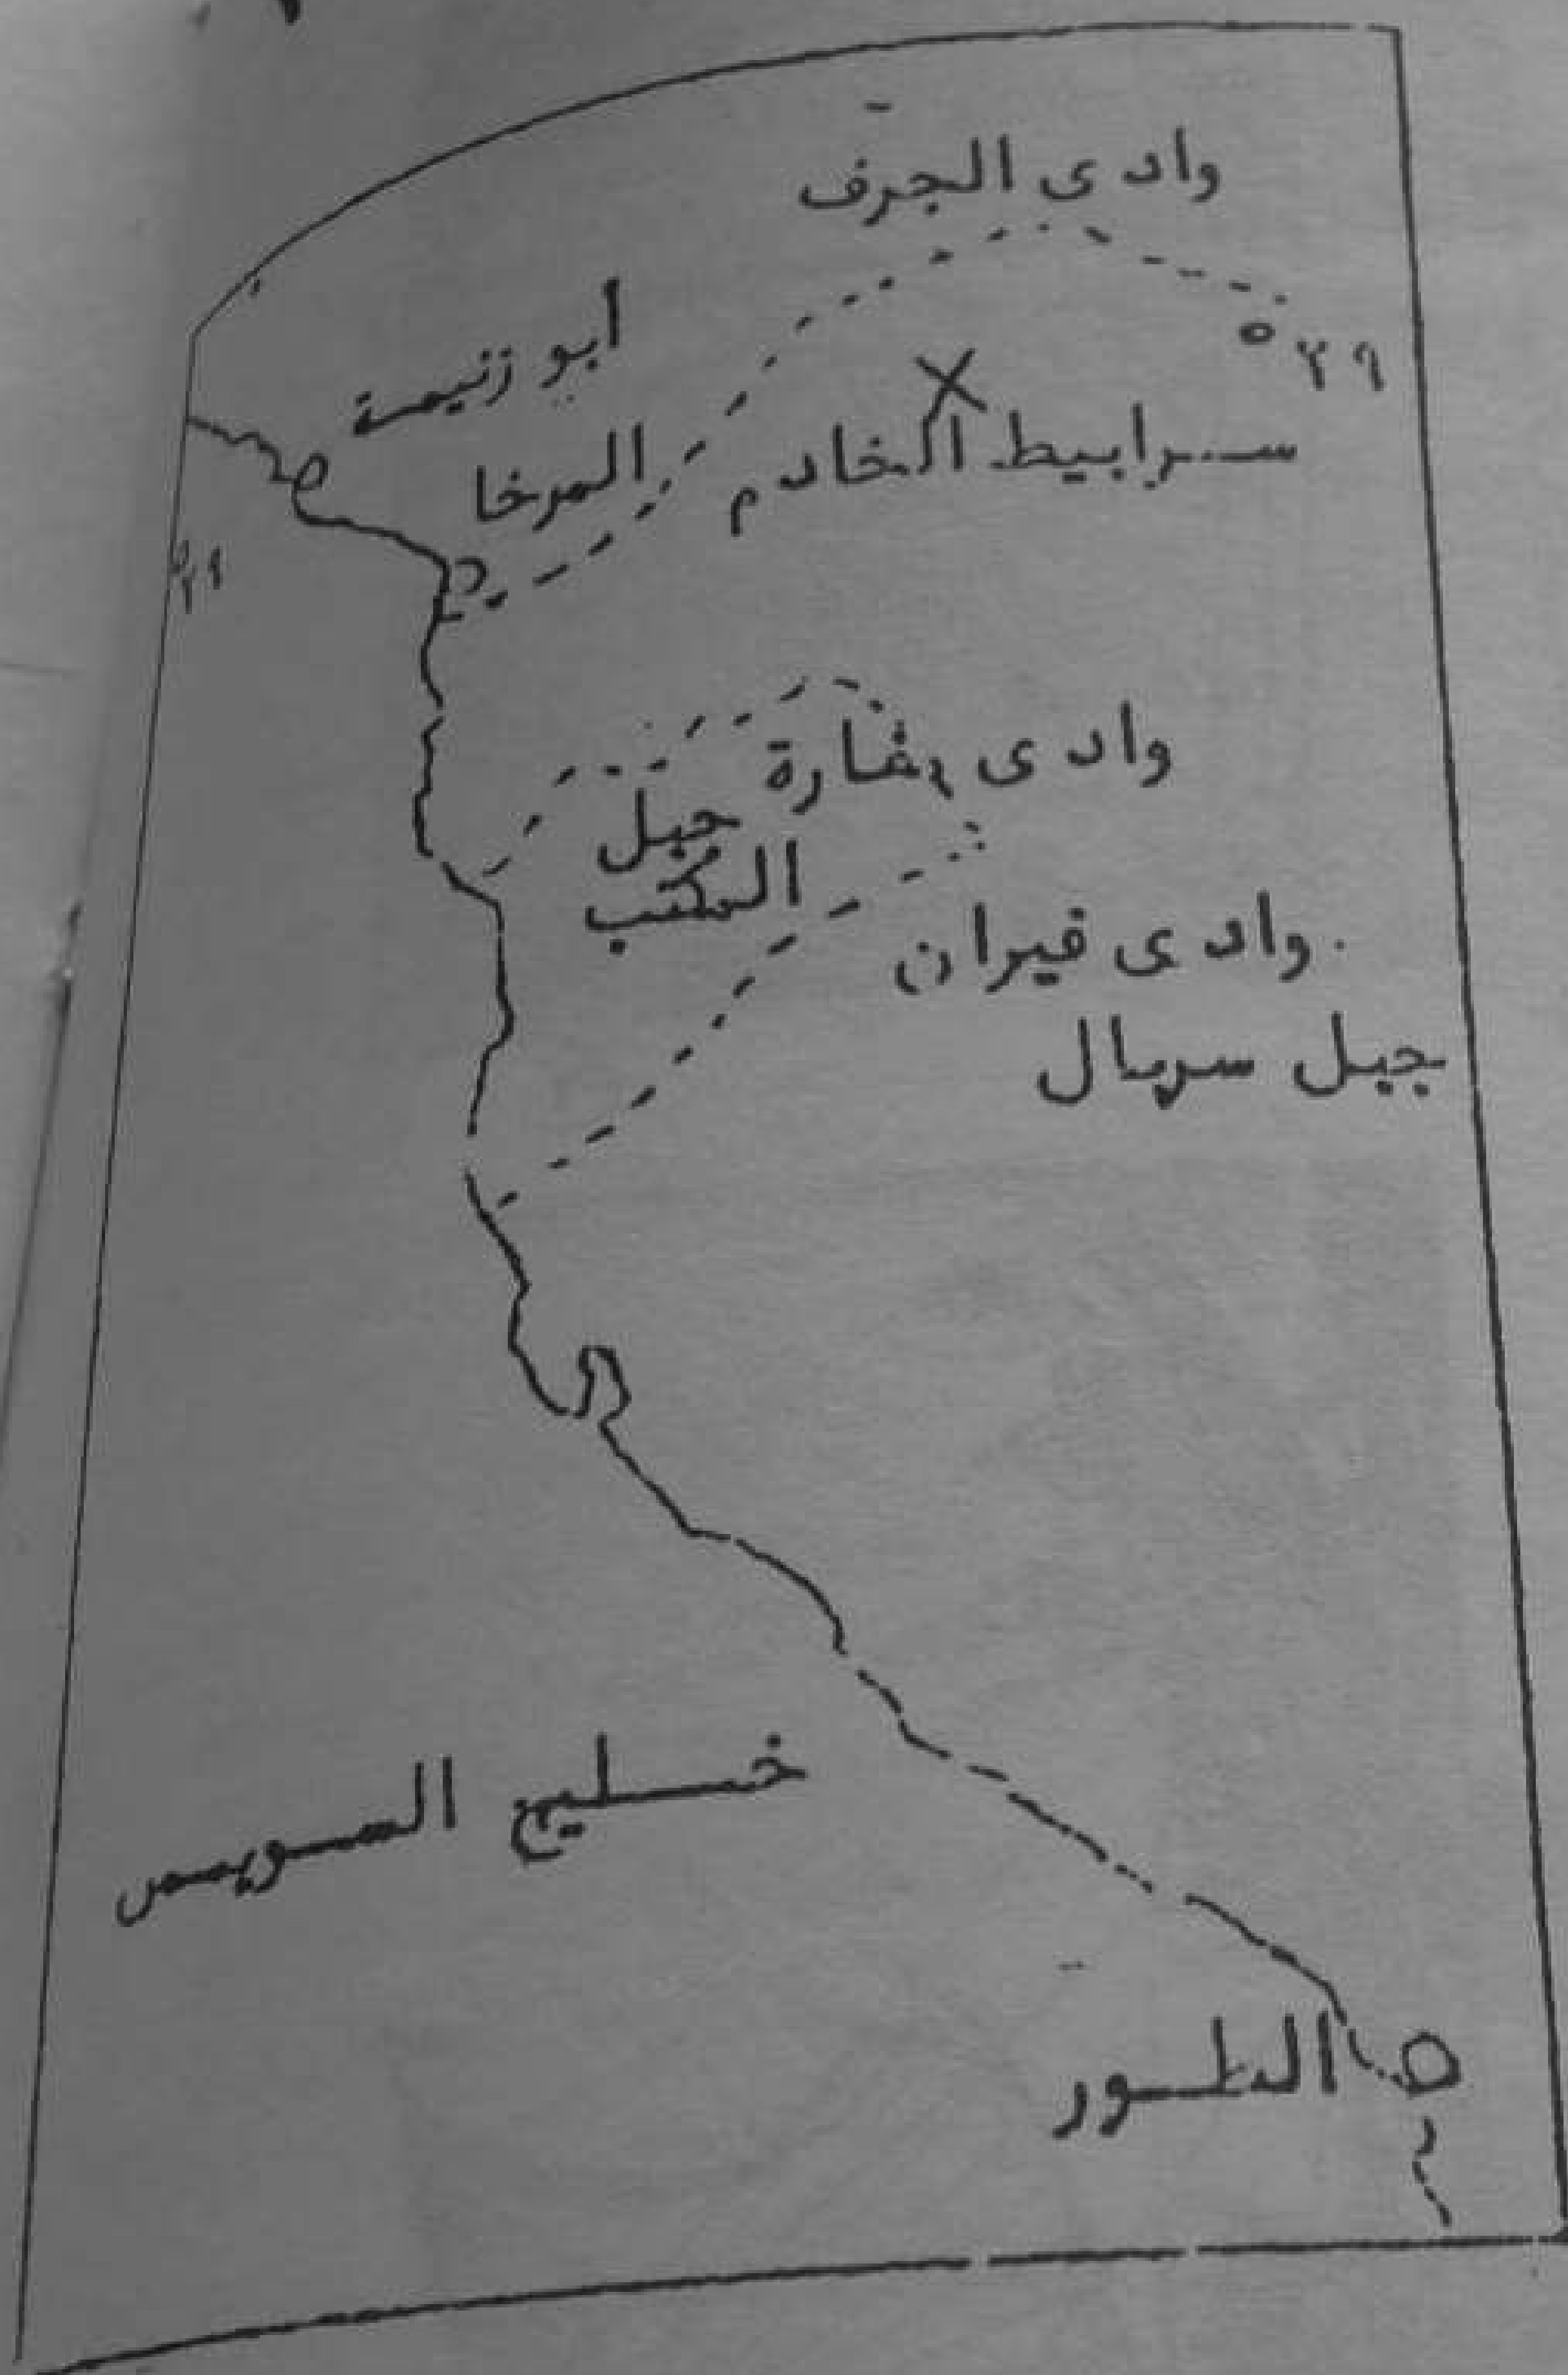 وادى الجرف
ابو زنيمة
°٢٩
سرابيط الخادم
المرخا
°٢٩
وادى مغارة
جبل
المكتب
وادى فيران
جبل سربال
خليج السويس
الطور